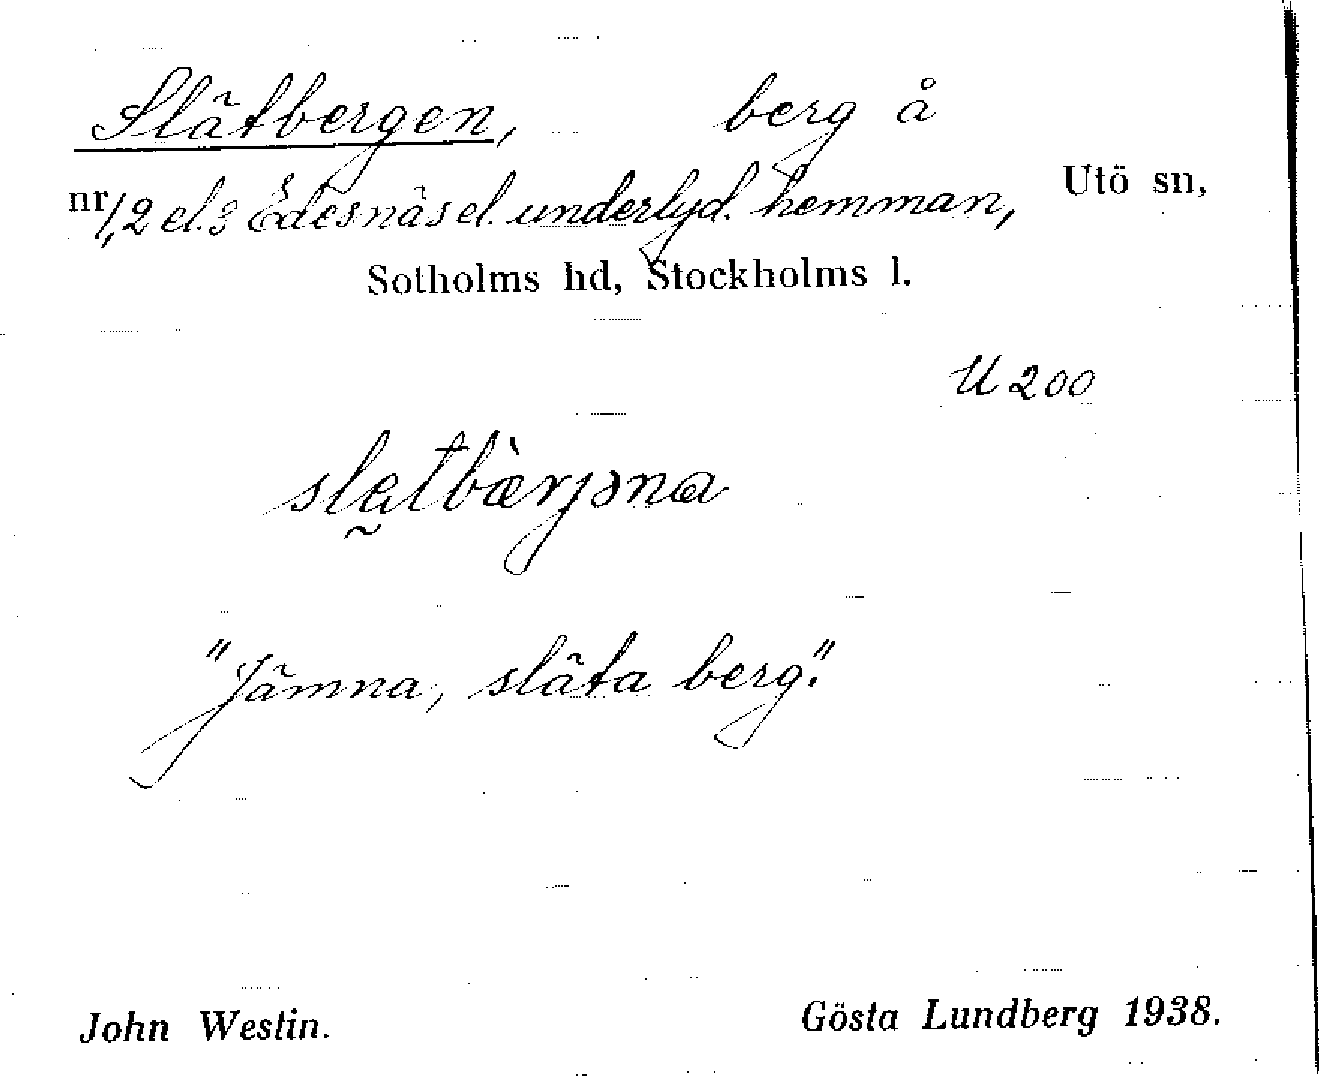 Slätbergen, berg å
nr 1, 2 el. 3 Edesnäs el. underlyd. hemman, Utö sn,
Sotholms hd, Stockholms l.
U 200
slętbæ̀rjəna
"Jämna, släta berg."
John Westin. Gösta Lundberg 1938.